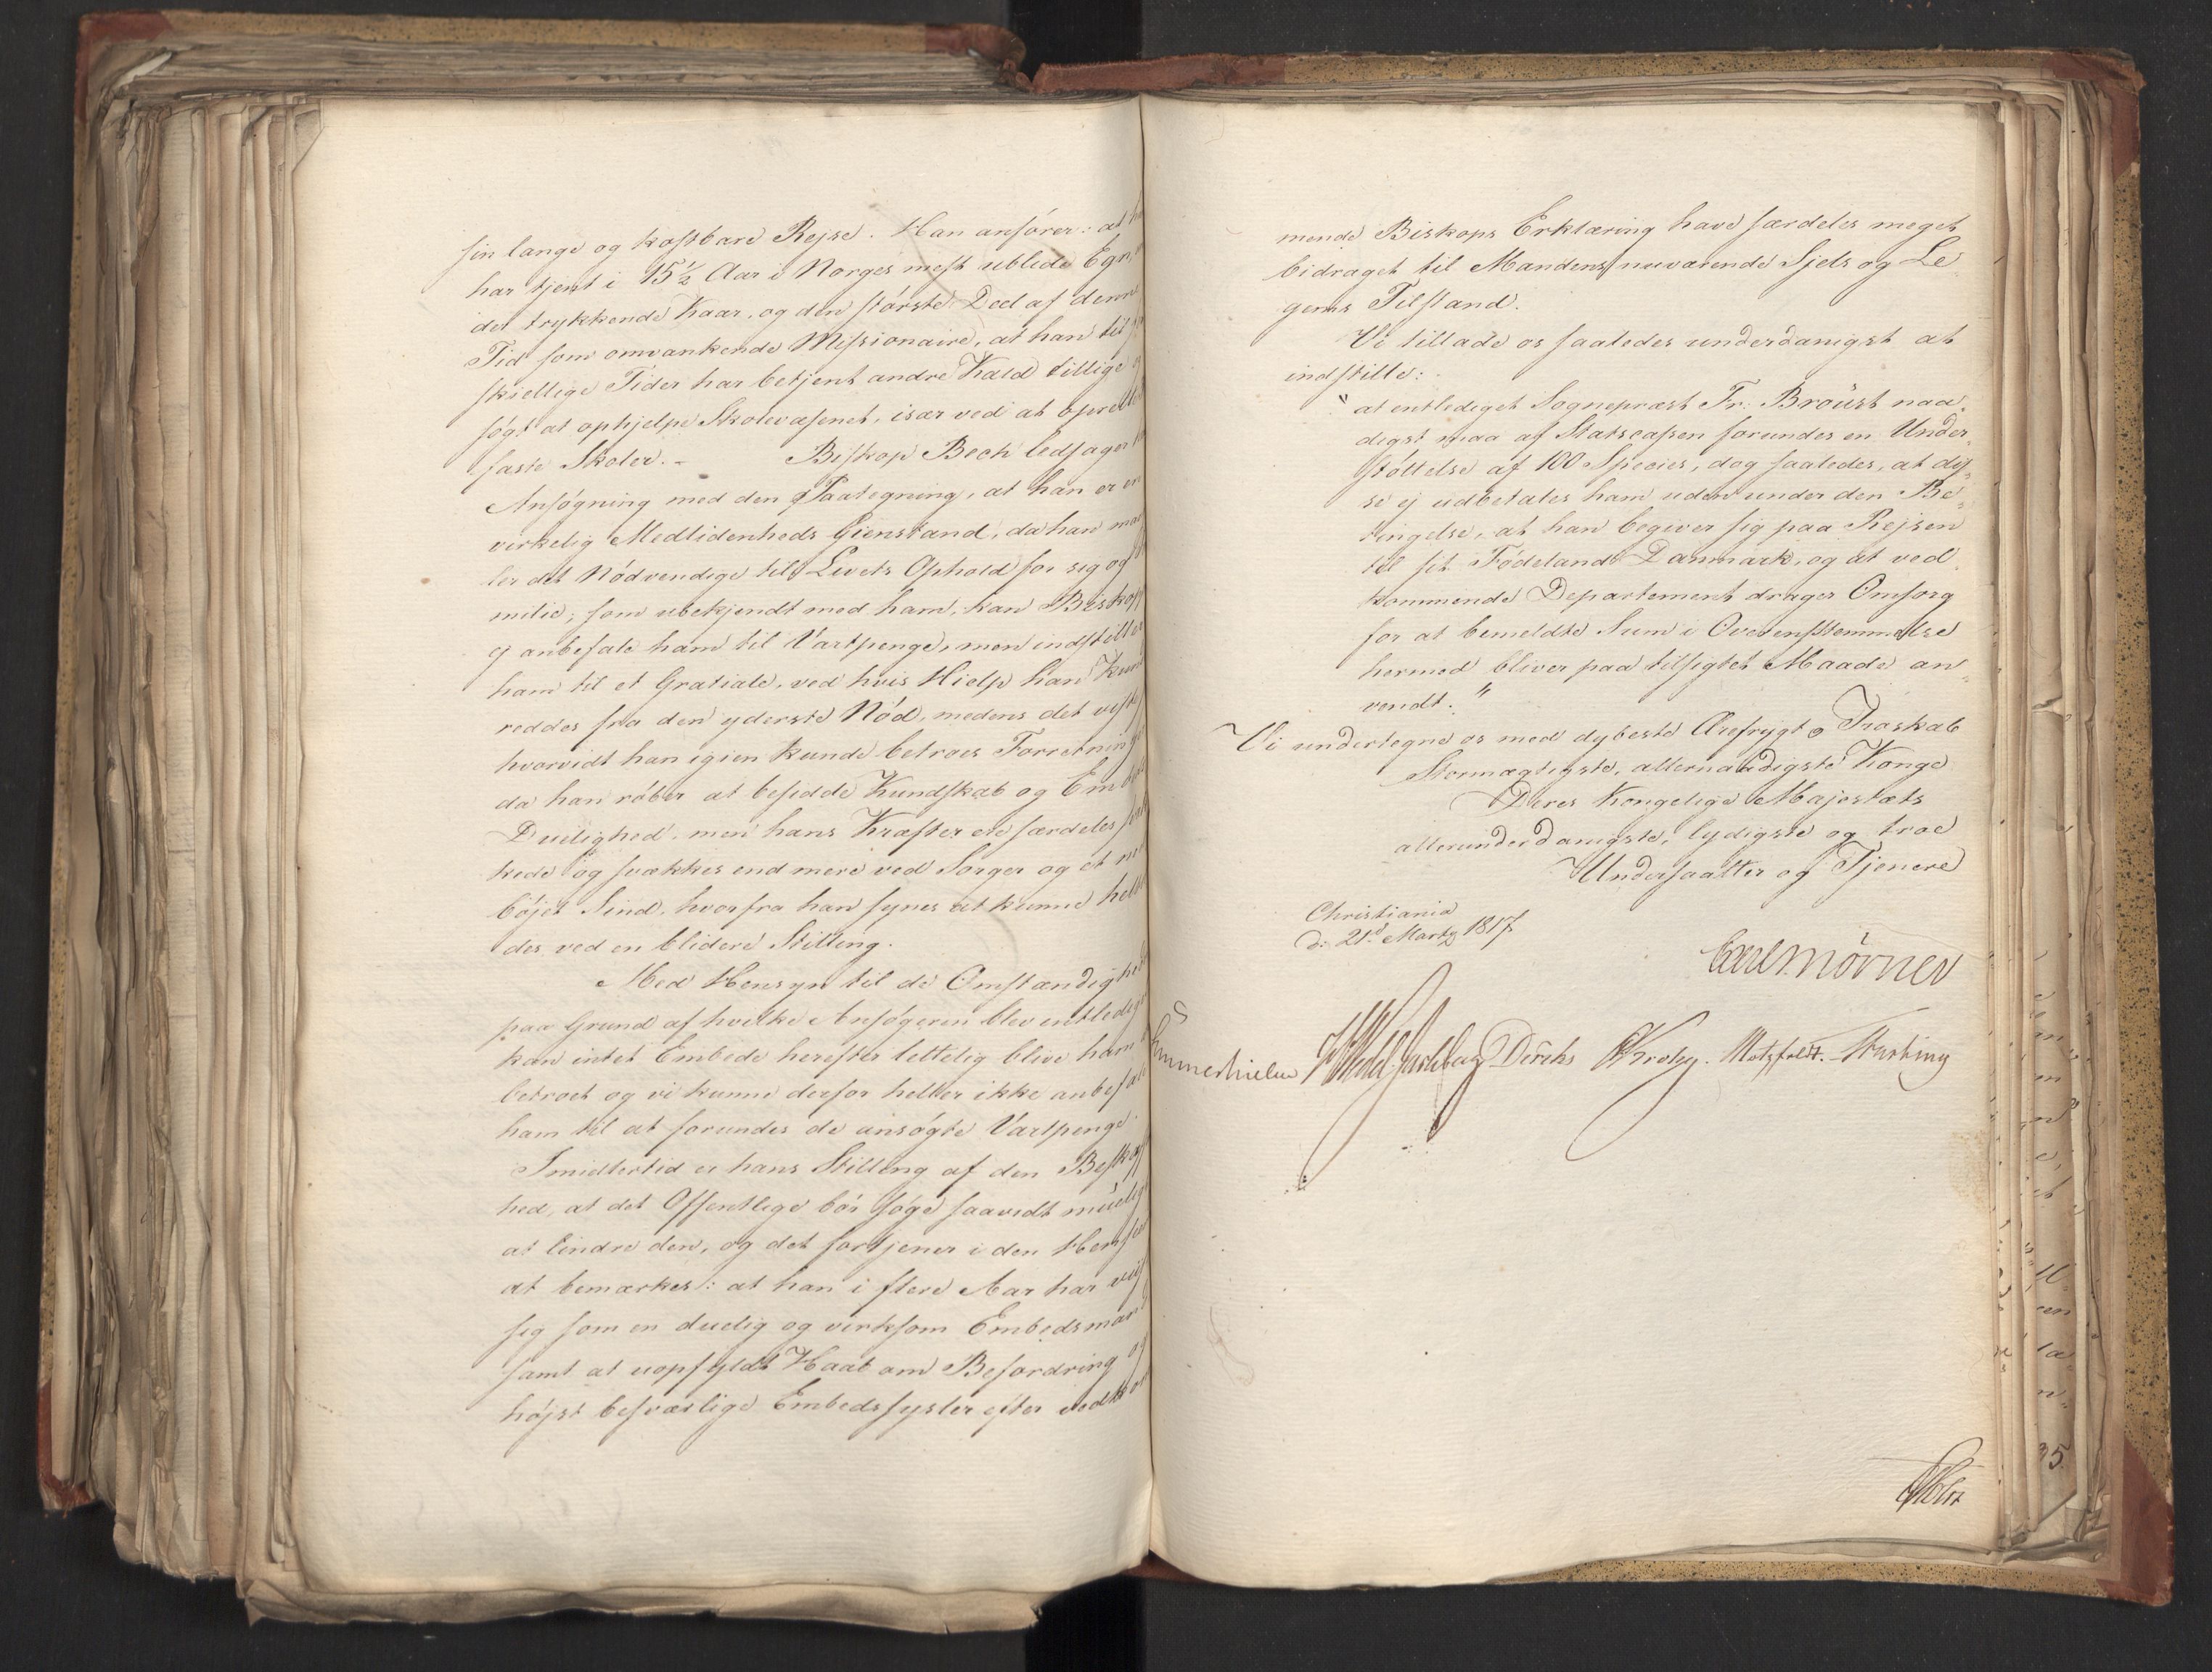 sin lange og kostbare Rejse. Han anfører: at
har tjent i 15½ Aar i Norges mest ublide Egn
det trykkende Kaar, og den største Deel af denne
Tid som omvankende Missionaire, at han til
skiellige Tider har betjent andre Kald tillige
søgt at ophjelpe Skolevæsenet, især ved at oprette
faste Skoler. – Biskop Bech ledsager
Ansøgning med den Paategning, at han er en
virkelig Medlidenheds Gienstand, da han man
ler det Nødvendige til Livets Ophold for sig og
milie; som ubekjendt med ham, kan Biskop
ej anbefale ham til Vartpenge, men indstiller
ham til et Gratiale, ved hvis Hielp han kun
reddes fra den yderste Nød, medens det
hvorvidt han igien kunde betroes Forretning
da han røber at besidde Kundskab og Em
Duelighed, men hans Kræfter ere særdeles
kede og svækkes end mere ved Sorger og et
bøjet Sind, hvorfra han synes at kunne hel
des ved en blidere Stilling.
Med Hensyn til de Omstændighe
paa Grund af hvilke Ansøgeren blev entledig
kan intet Embede herefter lettelig blive ham
betroet og vi kunne derfor heller ikke anbefale
ham til at forundes de ansøgte Vartpenge.
Imidlertid er hans Stilling af den Beskaf
hed, at det Offentlige bør søge saavidt muelig
at lindre den, og det fortjener i den Hens
at bemærkes: at han i flere Aar har viis
sig som en duelig og virksom Embedsman
samt at uopfyldt Haab om Befordring og
højst besværlige Embedssysler efter vedk
mende Biskops Erklæring have særdeles meget
bidraget til Mandens nuværende Sjels og Le
gems Tilstand.
Vi tillade os saaledes underdanigst at
indstille:
"at entlediget Sognepræst Fr: Broüst naa
digst maa af Statscassen forundes en Under
støttelse af 100 Species, dog saaledes, at dis
se ej udbetales ham uden under den Be
tingelse, at han begiver sig paa Rejsen
til sit Fødeland Danmark, og at ved
kommende Departement drager Omsorg
for at bemeldte Sum i Overensstemmelse
hermed bliver paa tilsigtet Maade an
vendt."
Vi undertegne os med dybeste Ærefrygt og Troskab
Stormægtigste, allernaadigste Konge
Deres Kongelige Majestæts
allerunderdanigste, lydigste og troe
Undersaatter og Tjenere
Christiania
d: 21d Martz 1817.
Carl Mörner
Sommerhielm HWedel Jarlsberg Diriks CKrohg. Motzfeldt.
Holst